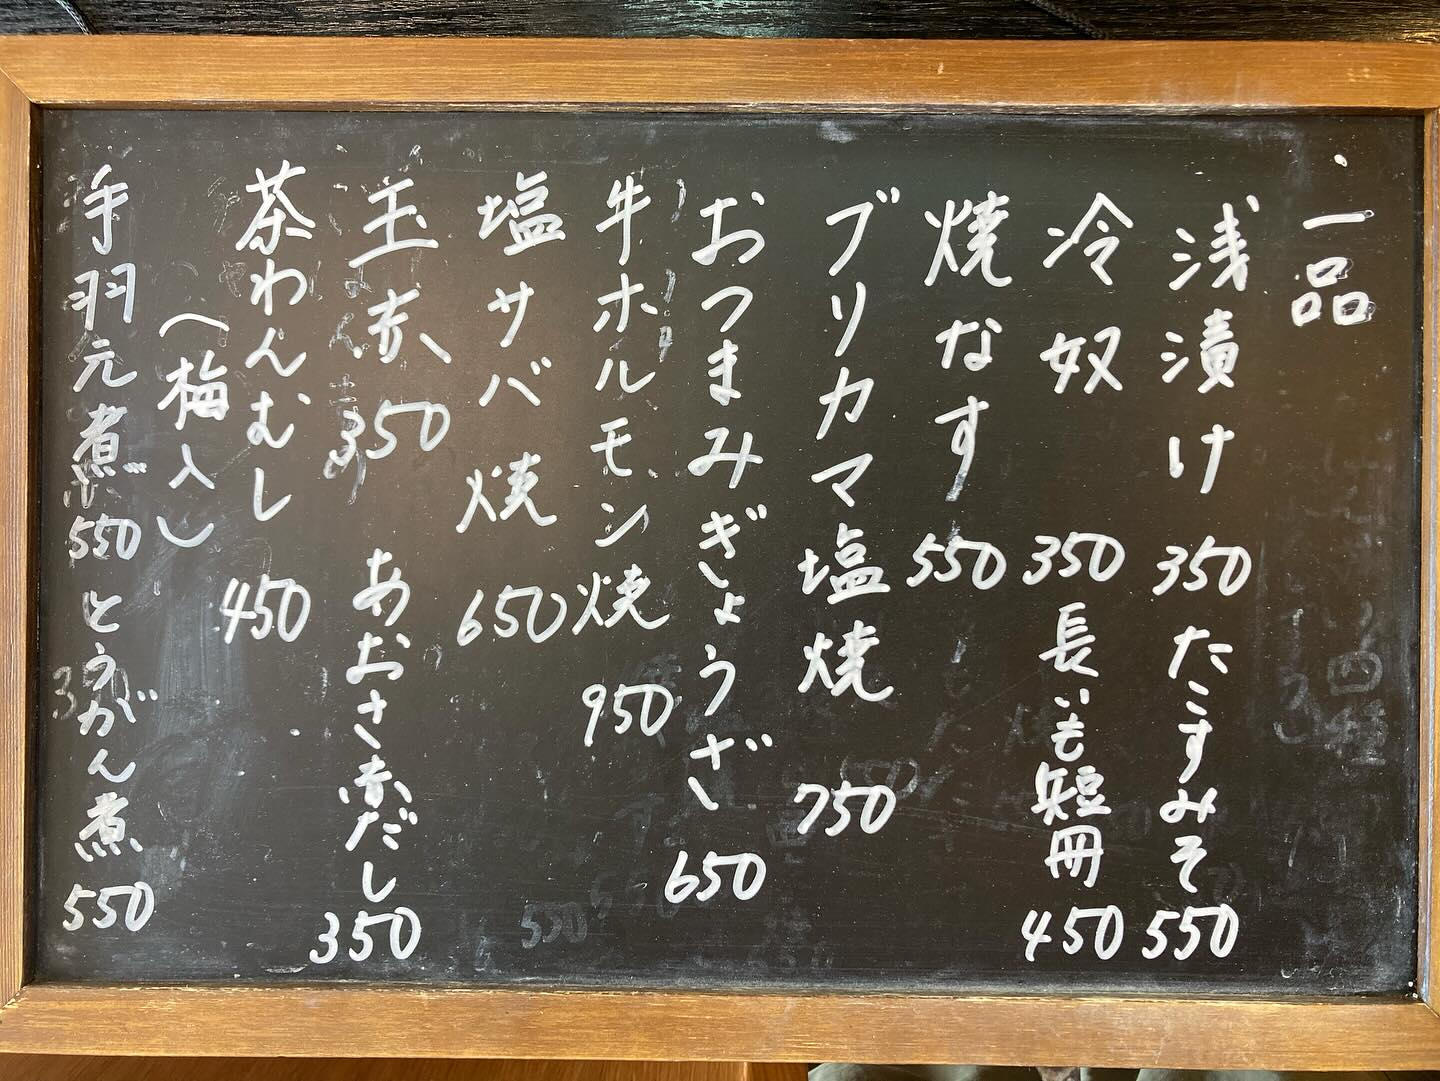 一品
浅漬け 350 たこすみそ 550
冷奴 350 長いも短冊 450
焼なす 550
ブリカマ塩焼 750
おつまみぎょうざ 650
牛ホルモン焼 950
塩サバ焼 650
玉赤 350 あおさ赤だし 350
茶わんむし 450
(梅入し)
手羽元煮 550 とうがん煮 550